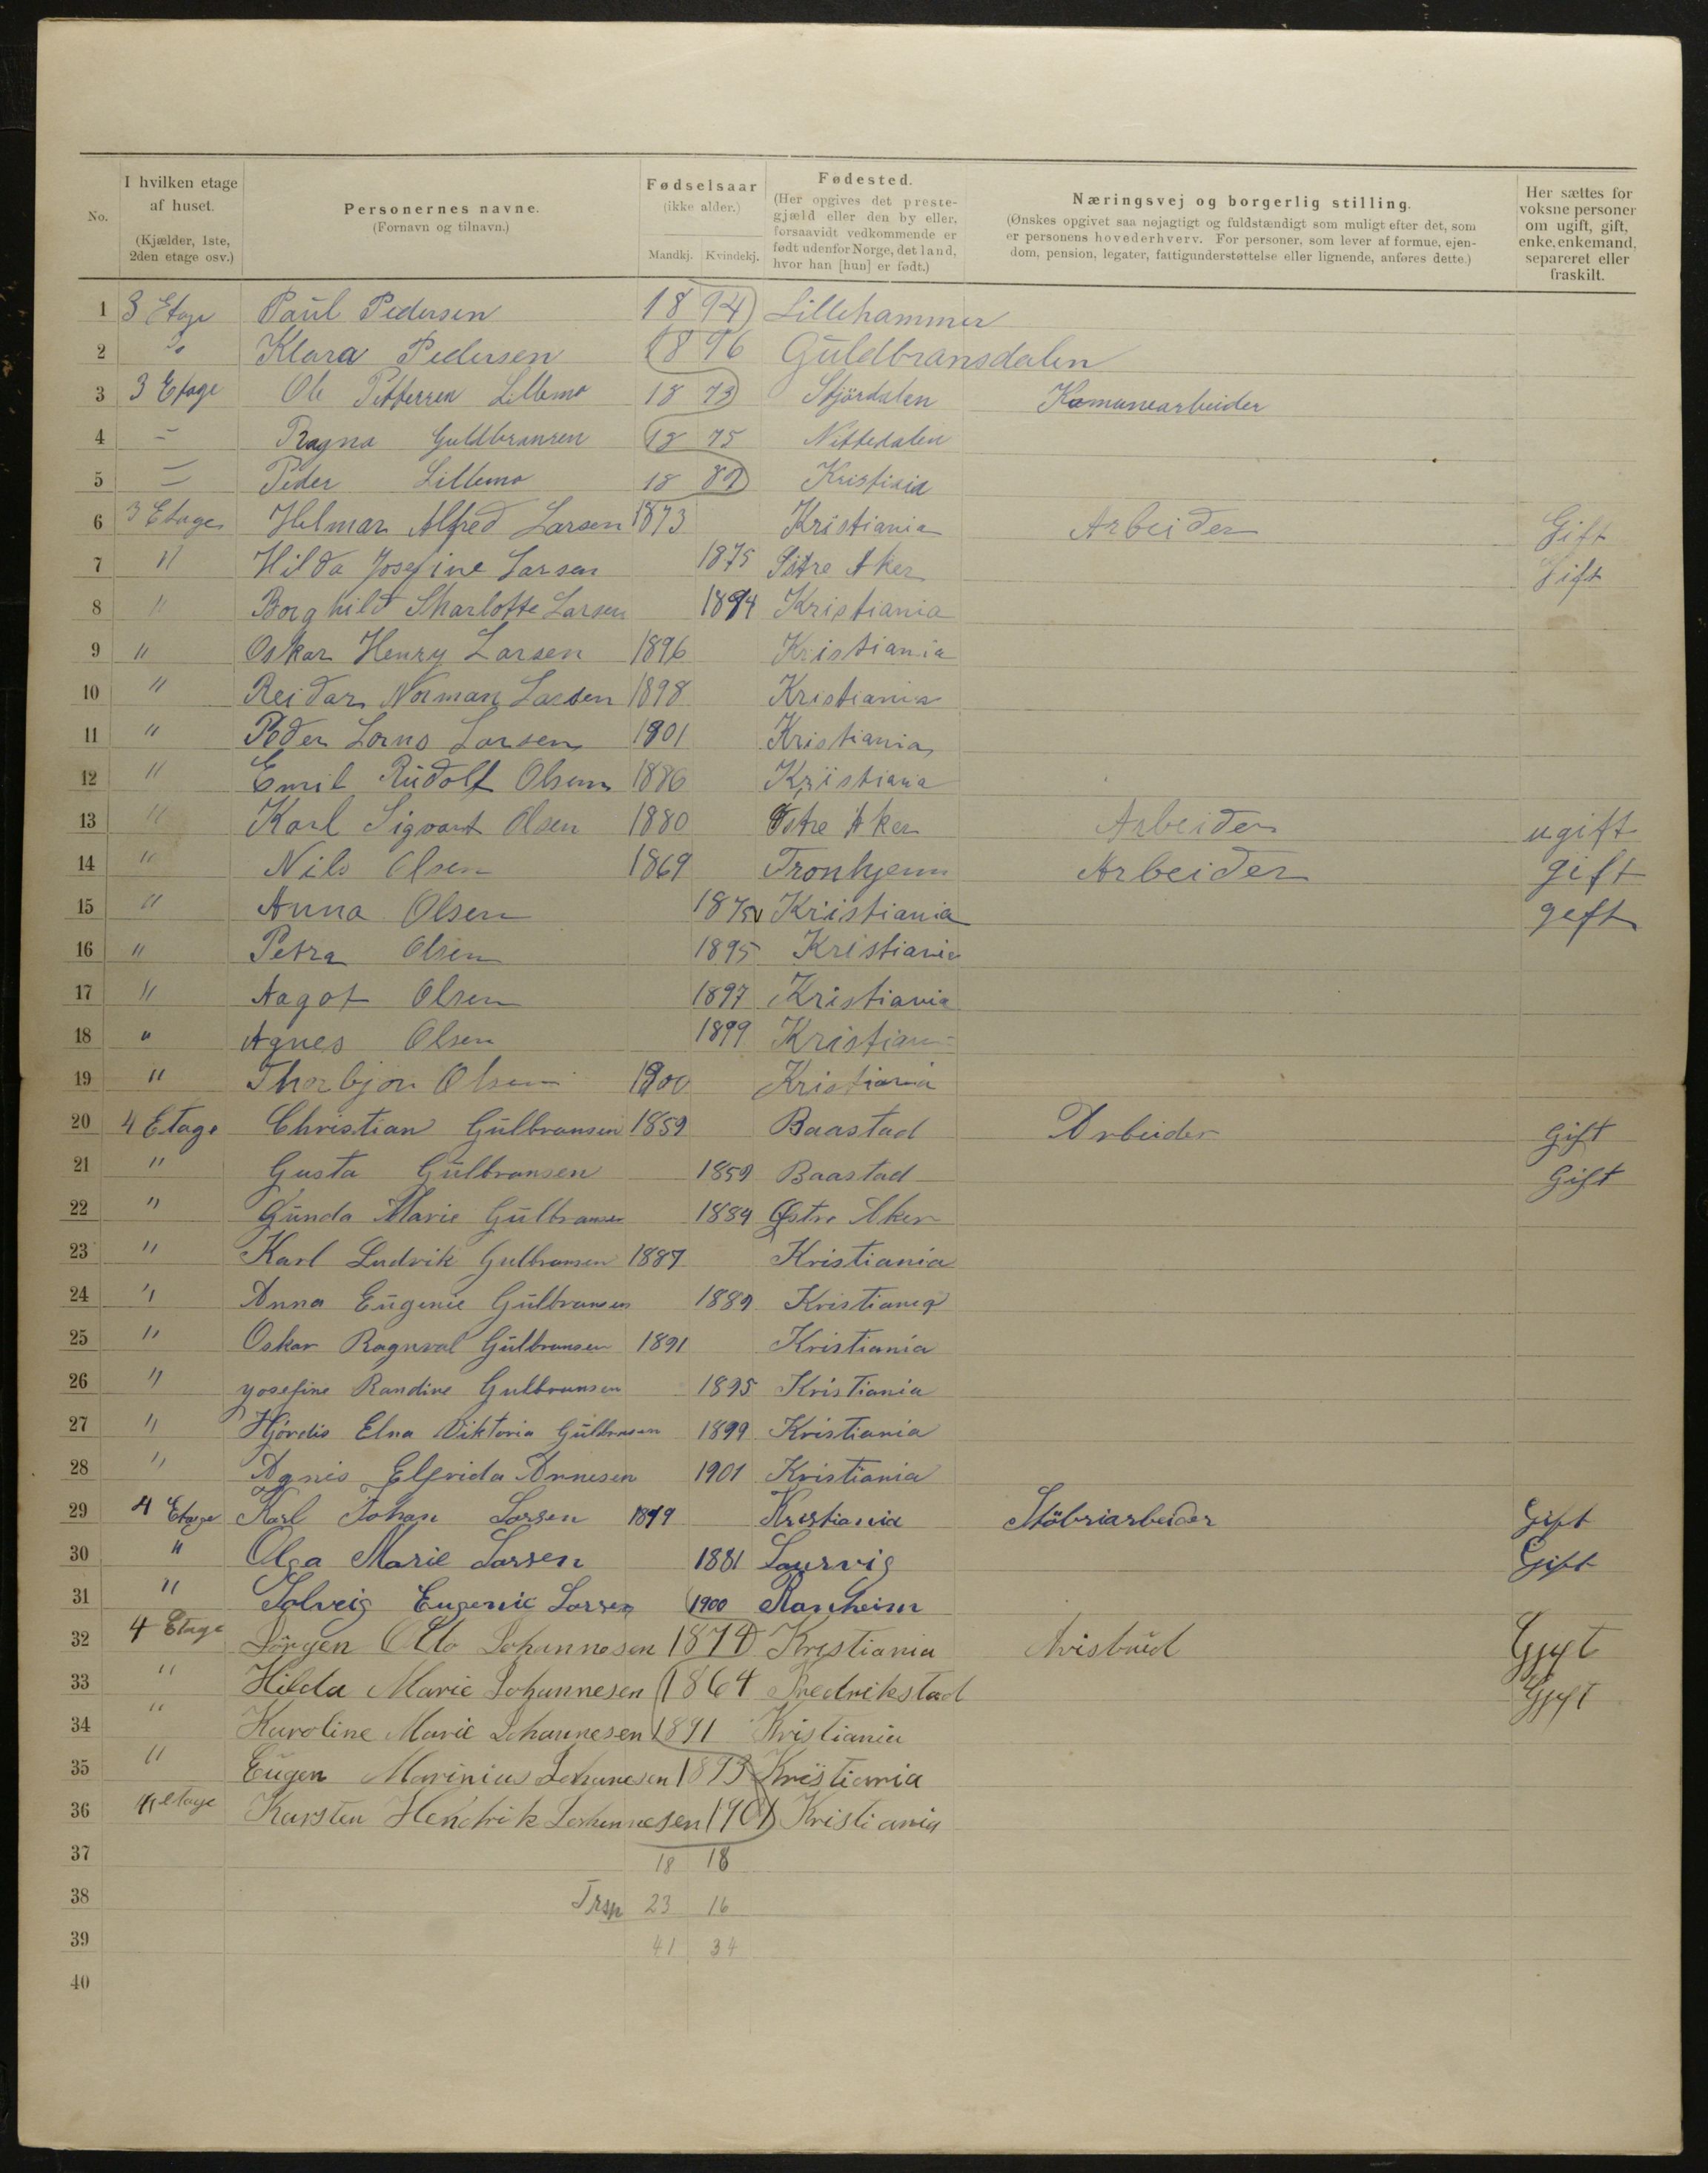 No.
I hvilken etage af huset. (Kjælder, 1ste, 2den etage osv.)
Personernes navne. (Fornavn og tilnavn.)
Fødselsaar (ikke alder.) Mandkj. Kvindekj.
Fødested. (Her opgives det prestegjæld eller den by eller, forsaavidt vedkommende er født udenfor Norge, det land, hvor han [hun] er født.)
Næringsvej og borgerlig stilling. (Ønskes opgivet saa nøjagtigt og fuldstændigt som muligt efter det, som er personens hovederhverv. For personer, som lever af formue, ejendom, pension, legater, fattigunderstøttelse eller lignende, anføres dette.)
Her sættes for voksne personer om ugift, gift, enke, enkemand, separeret eller fraskilt.
1 3 Etage Paul Pedersen 1894 Lillehammer
2 " Klara Pedersen 1896 Guldbransdalen
3 3 Etage Ole Pettersen Lillemo 1873 Stjördalen Komunearbeider
4 – Ragna Guldbransen 1875 Nittedalen
5 – Peder Lillemo 18 Kristinia
6 3 Etage Helmar Alfred Larsen 1873 Kristiania Arbeider Gift
7 " Hilda Josefine Larsen 1875 Aker Gift
8 " Borghild Sharlotte Larsen 1894 Kristiania
9 " Oskar Henry Larsen 1896 Kristiania
10 " Reidar Norman Larsen 1898 Kristiania
11 " Peder Larsen 1901 Kristiania
12 " Emil Rudolf Olsen 1886 Kristiana
13 " Karl Sigvart Olsen 1880 Østre Aker Arbeider ugift
14 " Nils Olsen 1869 Tronhjem Arbeider gift
15 " Anna Olsen Kristiania geft
16 " Petra Olsen 1895 Kristiania
17 " Aagot Olsen 1897 Kristiania
18 " Agnes Olsen 1899 Kristian
19 " Thorbjon Olsen 1900 Kristiania
20 4 Etage Christian Gulbransen 1859 Baastad Arbeider Gift
21 " Gusta Gulbransen 1859 Baastad Gift
22 " Gunda Marie Gulbransen 1884 Østre Aker
23 " Karl Ludvik Gulbransen 1887 Kristiania
24 " Anna Eugenie Gulbransen 1889 Kristiania
25 " Oskar Ragnval Gulbransen 1891 Kristiania
26 " Josefine Randine Gulbransen 1895 Kristiania
27 " Hjördis Elna Viktoria Gulbransen 1899 Kristiania
28 " Agnis Elfrida Arnesen 1901 Kristiania
29 4 Etage Karl Johan Larsen 1879 Kristiania Stöbriarbeider Gift
30 " Olga Marie Larsen 1881 Laurvig Gift
31 " Solveig Eugenie Larsen 1900 Ranheim
32 4 Etage Jörgen Otto Johannesen 1874 Kristiania Avisbud Gjift
33 " Hilda Marie Johannesen 1864 Fredrikstad Gjift
34 " Karoline Marie Johannesen 1891 Kristiania
35 " Eugen Marinius Johanesen 1893 Kristiania
36 4 etage Karsten Hendrik Johannesen 1901 Kristiania
37 18 18
38 Trsp 23 16
39 41 34
40